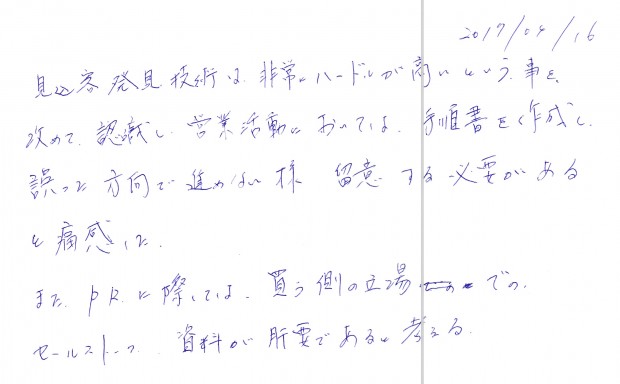 2017/04/16
見込客発見技術は、非常にハードルが高いという事を、
改めて、認識し、営業活動においては、手順書を作成し、
誤った方向で進めない様 留意する必要がある
と痛感した。
また、PRに際しては、買う側の立場での、
セールストーク、資料が肝要であると考える。